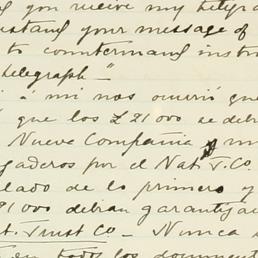 you receive my telegra
stand your message of
to countermand instru
telegraph"
á mi nos ocurrió que
que los £21000 se deb
Nueva Compañia y m
gaderos por el Nat. T. Co.
lado de lo primero y
21000 debian garantiza
t. Trust Co — Nunca
todos los documen